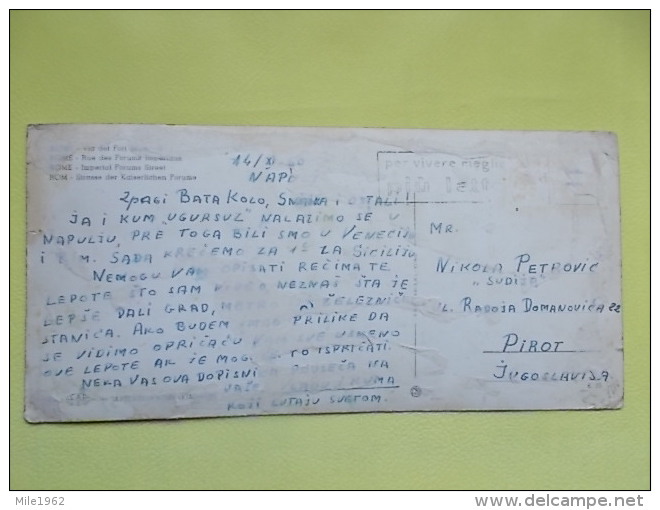 Rue des Forums Impériaux
ROME - Imperial Forums Street
ROM - Strasse der Kaiserlichen Foren
14/XI
NAPI
per vivere meglio
DRAGI BATA KOLO, SNAJA I OSTALI!
JA I KUM "UGURSUZ" NALAZIMO SE U
NAPULJU, PRE TOGA BILI SMO U VENECIJI
I RIM. SADA KREĆEMO ZA 15 ZA SICILIJU
NEMOGU VAM OPISATI REČIMA TE
LEPOTE ŠTO SAM VIDEO NEZNAŠ ŠTA JE
LEPŠE DALI GRAD, ŽELEZNIČ
STANICA. AKO BUDEM PRILIKE DA
SE VIDIMO OPRIČAĆU VAM SVE USMENO
OVE LEPOTE AK JE MOG TO ISPRIČATI.
NEKA VAS OVA DOPISNI
VAŠE KUMA
KOJI LUTAJU SVETOM.
MR.
NIKOLA PETROVIĆ
"SUDIJA"
UL. RADOJA DOMANOVIĆA 22
PIROT
JUGOSLAVIJA
Mile1962